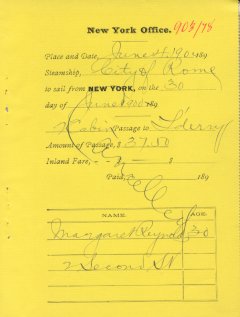 New York Office. 905/78
Place and Date, June 4, 190 189
Steamship, City of Rome
to sail from NEW YORK, on the 30
day of June 1900 189
2 Cabin Passage to L'derry
Amount of Passage, $ 37.50
Inland Fare, $
Paid, $ 189
Cancelled
NAME. AGE.
Margaret Reynolds 30
2 Second St